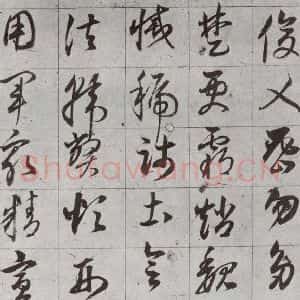 俊乂密勿多
楚更霸趙魏
滅虢踐土會
法韓弊煩刑
用軍最精宣
Shufawang.CN